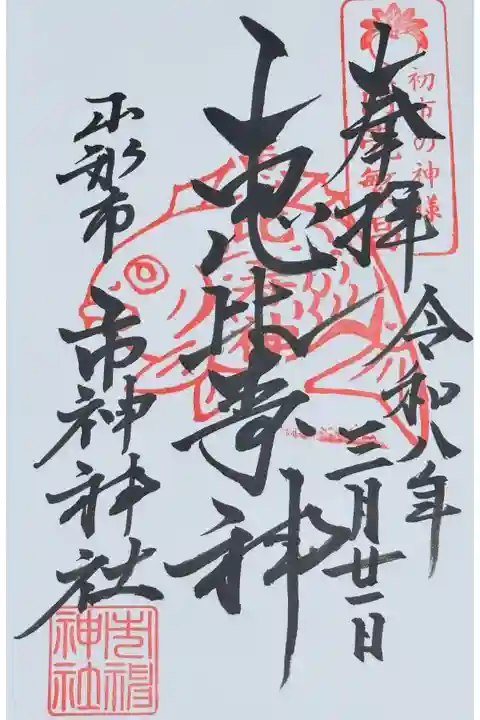 奉拝
初市の神様
令和八年
三月廿一日
恵比寿神
山形市
市神神社
市神神社